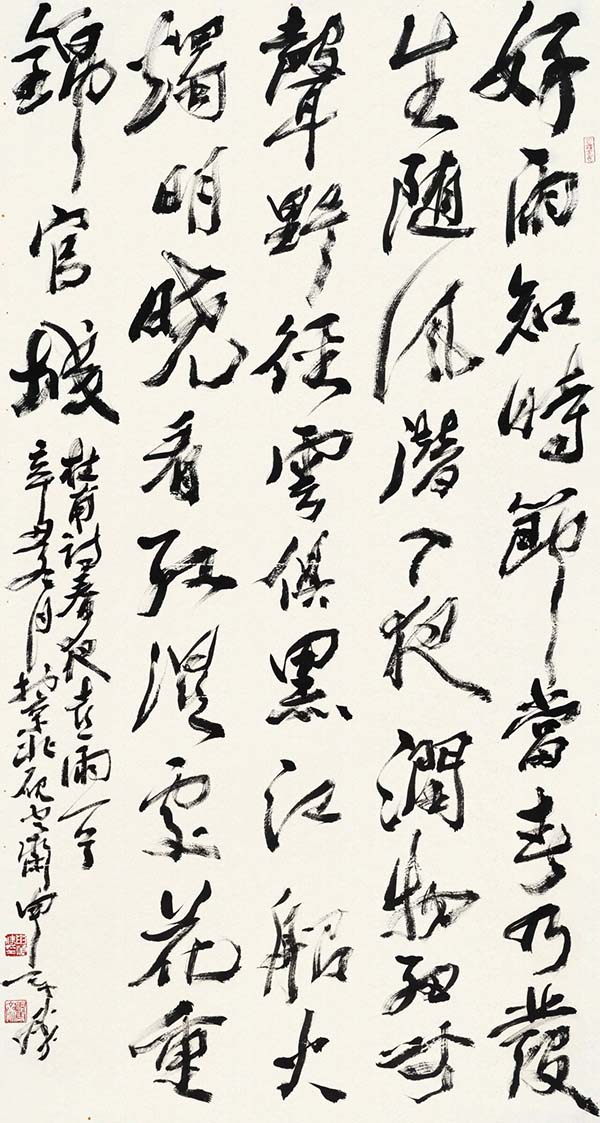 好雨知時節當春乃發
生随風潛入夜潤物細無
聲野徑雲俱黑江船火
獨明曉看紅濕處花重
錦官城
杜甫詩春夜喜雨一首
辛丑 月於京北 齋申